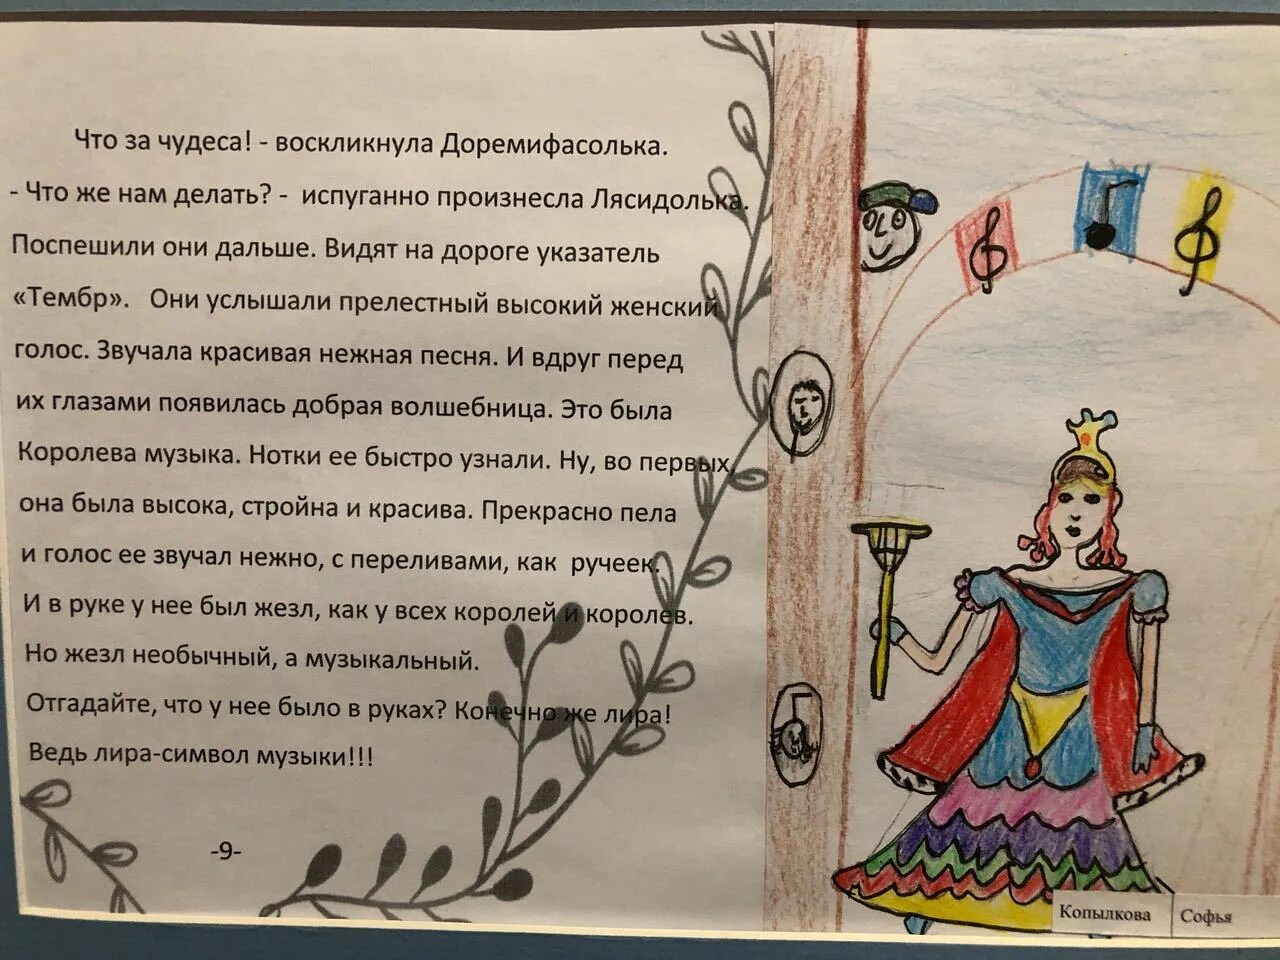 Что за чудеса! - воскликнула Доремифасолька.
- Что же нам делать? - испуганно произнесла Лясидолька.
Поспешили они дальше. Видят на дороге указатель
«Тембр». Они услышали прелестный высокий женский
голос. Звучала красивая нежная песня. И вдруг перед
их глазами появилась добрая волшебница. Это была
Королева музыка. Нотки ее быстро узнали. Ну, во первых,
она была высока, стройна и красива. Прекрасно пела
и голос ее звучал нежно, с переливами, как ручеек.
И в руке у нее был жезл, как у всех королей и королев.
Но жезл необычный, а музыкальный.
Отгадайте, что у нее было в руках? Конечно же лира!
Ведь лира-символ музыки!!!
-9-
Копылкова Софья